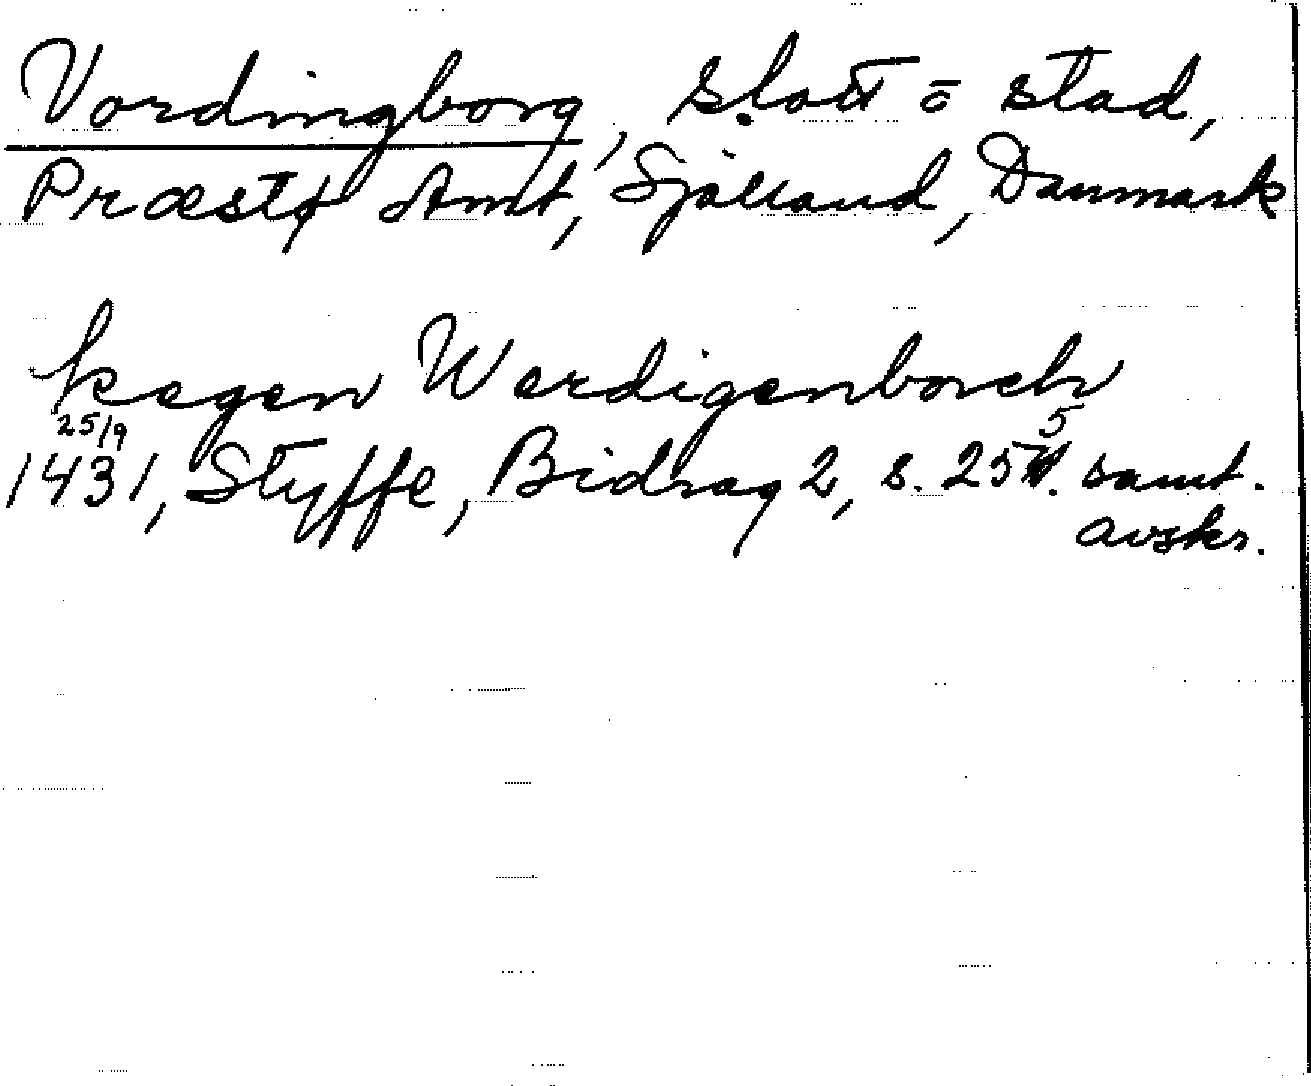 Vordingborg, slott o stad,
Præstø Amt, Själland, Danmark
kegen Werdigenborch
25/9
1431, Styffe, Bidrag 2, s. 255. samt.
avskr.